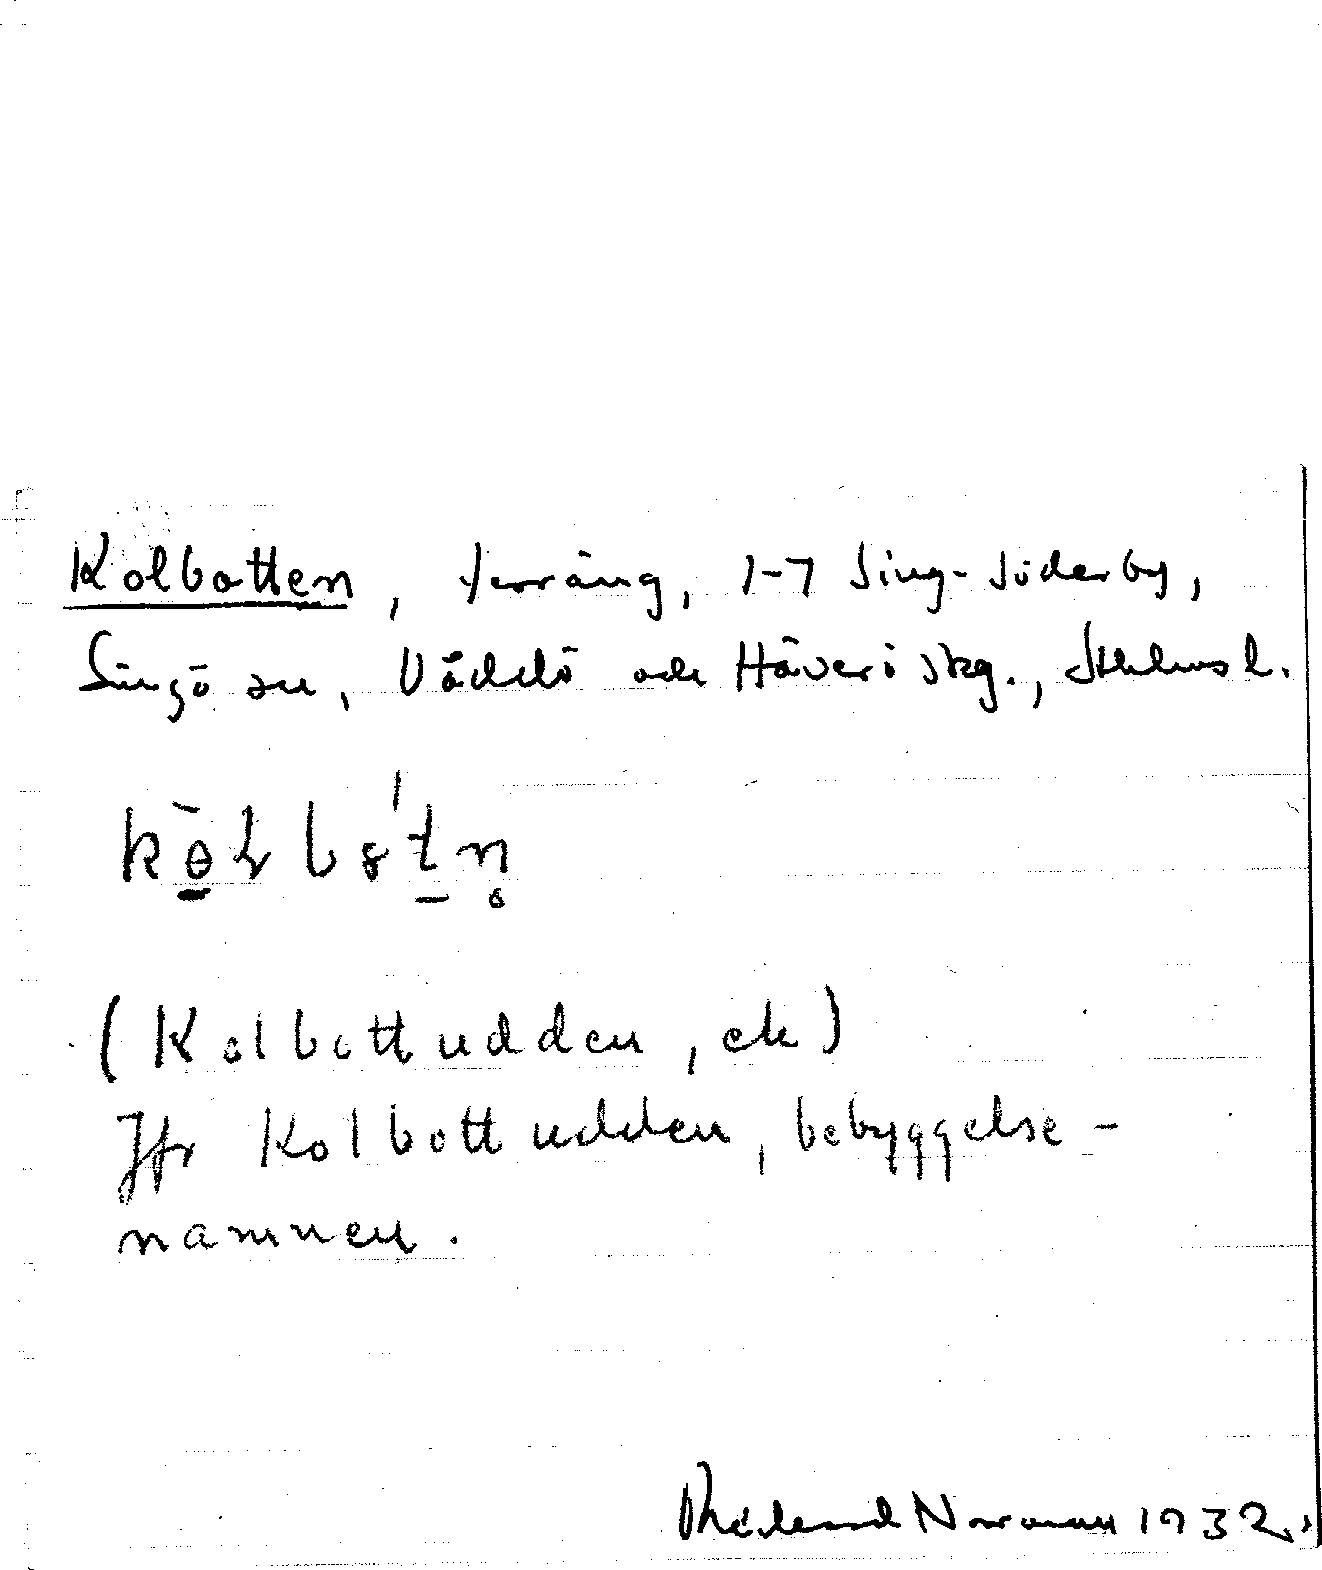 Kolbotten, terräng, 1-7 Sing-Söderby,
Singö sn, Väddö och Häverö skg., Sthlms l.
(Kolbottudden, ek)
Jfr Kolbottudden, bebyggelse-
namnen.
Norman 1932.